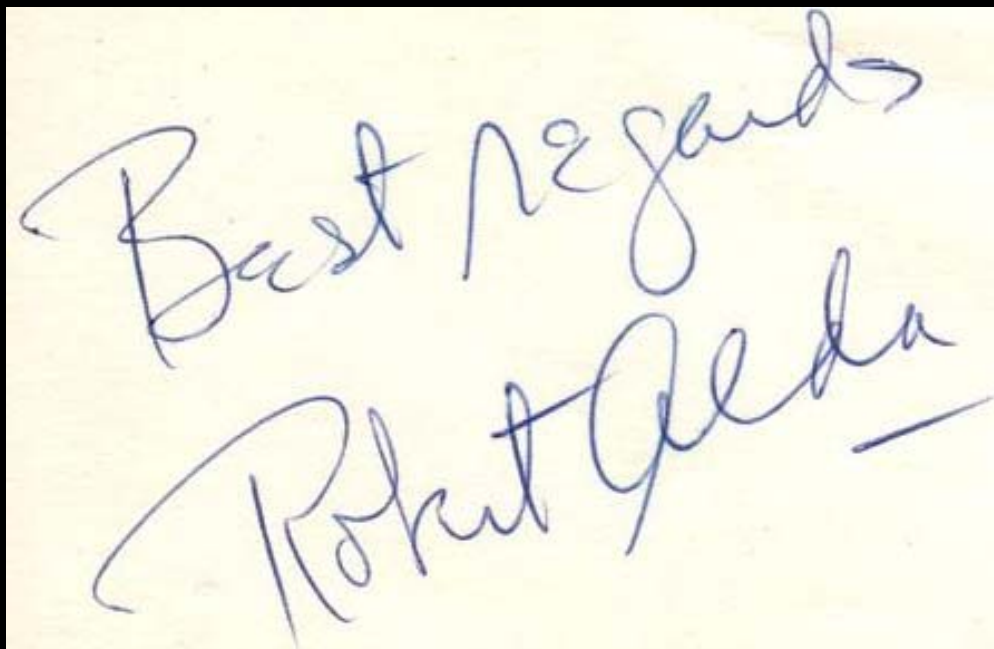 Best regards
Robert Alda